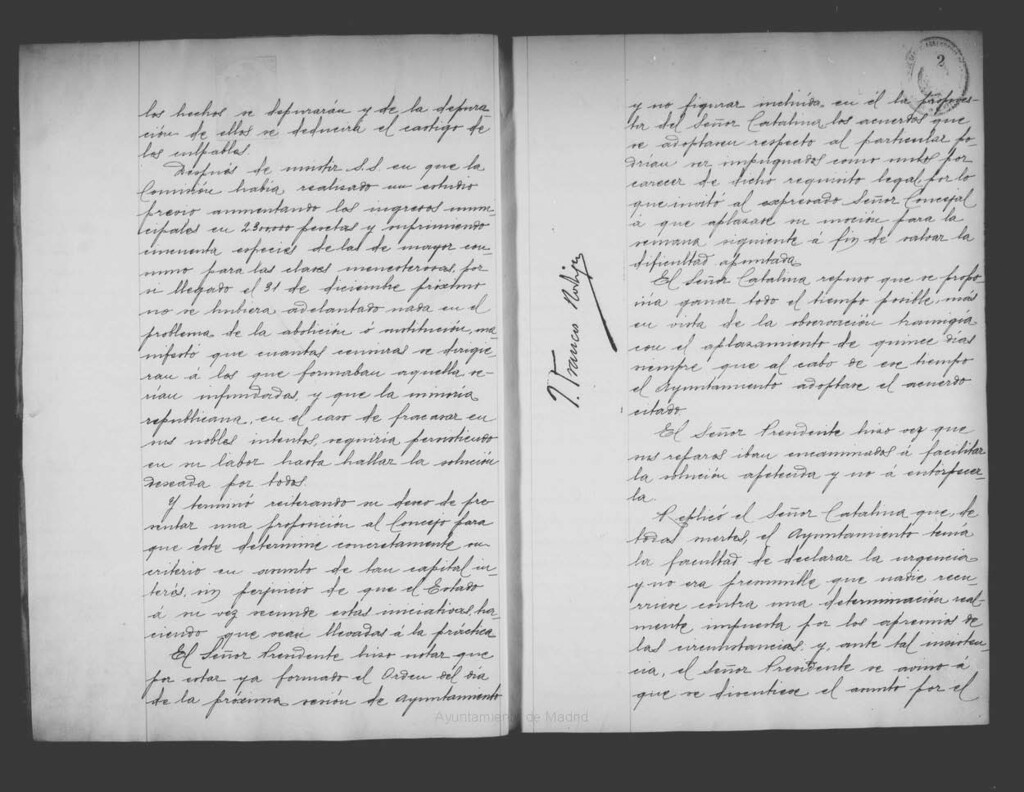 los hechos se depurarán y de la depura
ción de ellos se deducirá el castigo de
los culpables.
Después de insistir S.S. en que la
Comisión había realizado un estudio
previo aumentando los ingresos muni-
cipales en 230.000 pesetas y suprimiendo
cincuenta especies de las de mayor con-
sumo para las clases menesterosas, por
si llegado el 31 de diciembre próximo
no se hubiera adelantado nada en el
problema de la abolición ó sustitución, ma
nifestó que cuantas censuras se dirigie
ran á los que formaban aquella se-
rían infundadas, y que la minoría
republicana, en el caso de fracasar en
sus nobles intentos, seguiría persistiendo
en su labor hasta hallar la solución
deseada por todos.
Y terminó reiterando su deseo de pre
sentar una proposición al Concejo para
que éste determine concretamente su
criterio en asunto de tan capital in-
terés, sin perjuicio de que el Estado
á su vez secunde estas iniciativas, ha-
ciendo que sean llevadas á la práctica
El Señor Presidente hizo notar que
por estar ya formado el Orden del día
de la próxima sesión de Ayuntamiento
2
y no figurar incluida en él la propues-
ta del Señor Catalina, los acuerdos que
se adoptasen respecto al particular po-
drían ser impugnados como nulos por
carecer de dicho requisito legal, por lo
que invitó al expresado Señor Concejal
á que aplazase su moción para la
semana siguiente á fin de salvar la
dificultad apuntada.
El Señor Catalina repuso que se propo-
nía ganar todo el tiempo posible, más
en vista de la observación transigía
con el aplazamiento de quince días
siempre que al cabo de ese tiempo
el Ayuntamiento adoptase el acuerdo
citado.
El Señor Presidente hizo ver que
sus reparos iban encaminados á facilitar
la solución apetecida y no á entorpecer-
la.
Replicó el Señor Catalina que, de
todas suertes, el Ayuntamiento tenía
la facultad de declarar la urgencia
y no era presumible que nadie recu-
rriese contra una determinación real-
mente impuesta por los apremios de
las circunstancias, y, ante tal insisten-
cia, el Señor Presidente se avino á
que se discutiese el asunto por el
Ayuntamiento de Madrid